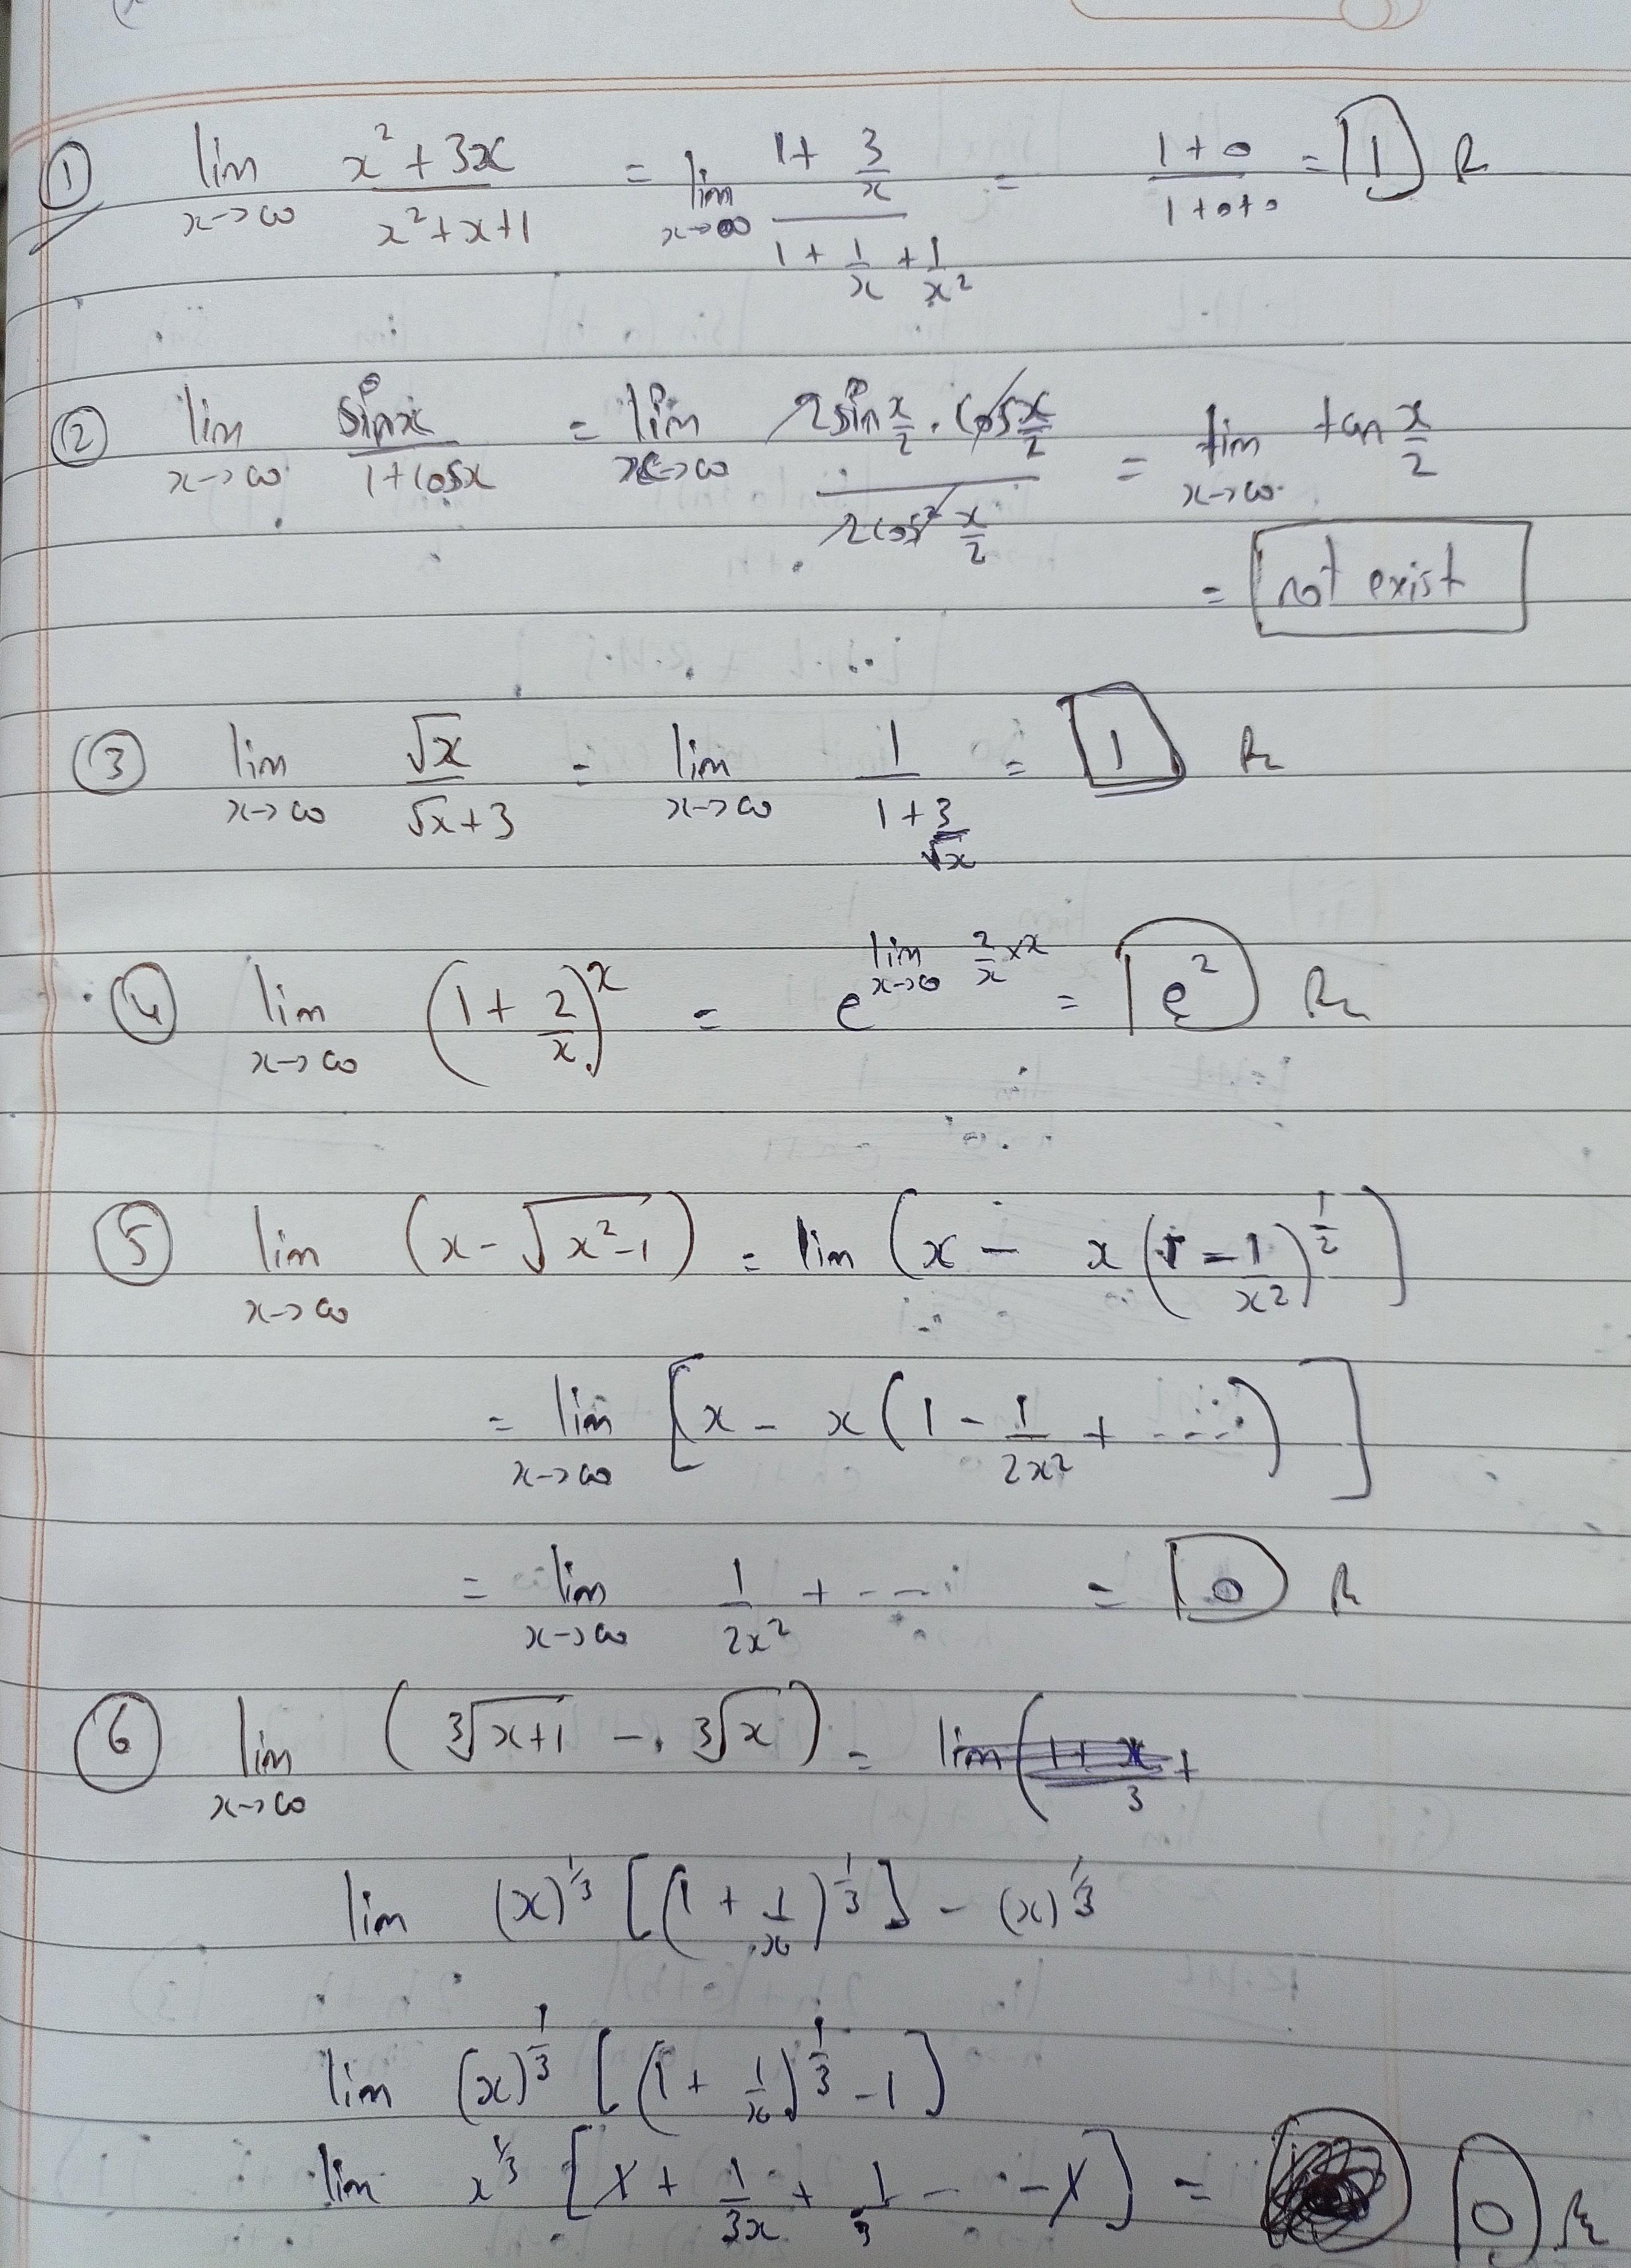 ① lim x→∞ (x² + 3x)/(x² + x + 1) = lim x→∞ (1 + 3/x)/(1 + 1/x + 1/x²) = (1 + 0)/(1 + 0 + 0) = 1
② lim x→∞ sinx/(1 + cosx) = lim x→∞ (2 sin x/2 . cos x/2)/(2 cos² x/2) = lim x→∞ tan x/2
= not exist
③ lim x→∞ √x/(√x + 3) = lim x→∞ 1/(1 + 3/√x) = 1
④ lim x→∞ (1 + 2/x)^x = e^(lim x→∞ 2/x × x) = e²
⑤ lim x→∞ (x - √(x² - 1)) = lim (x - x(1 - 1/x²)^(1/2))
= lim x→∞ [x - x(1 - 1/2x² + ----)]
= lim x→∞ 1/2x² + --- = 0
⑥ lim x→∞ (∛(x+1) - ∛x) = lim (1 + x/3 +
lim (x)^(1/3) [(1 + 1/x)^(1/3)] - (x)^(1/3)
lim (x)^(1/3) [(1 + 1/x)^(1/3) - 1]
lim x^(1/3) [1 + 1/3x + 1 - - - 1] = 0